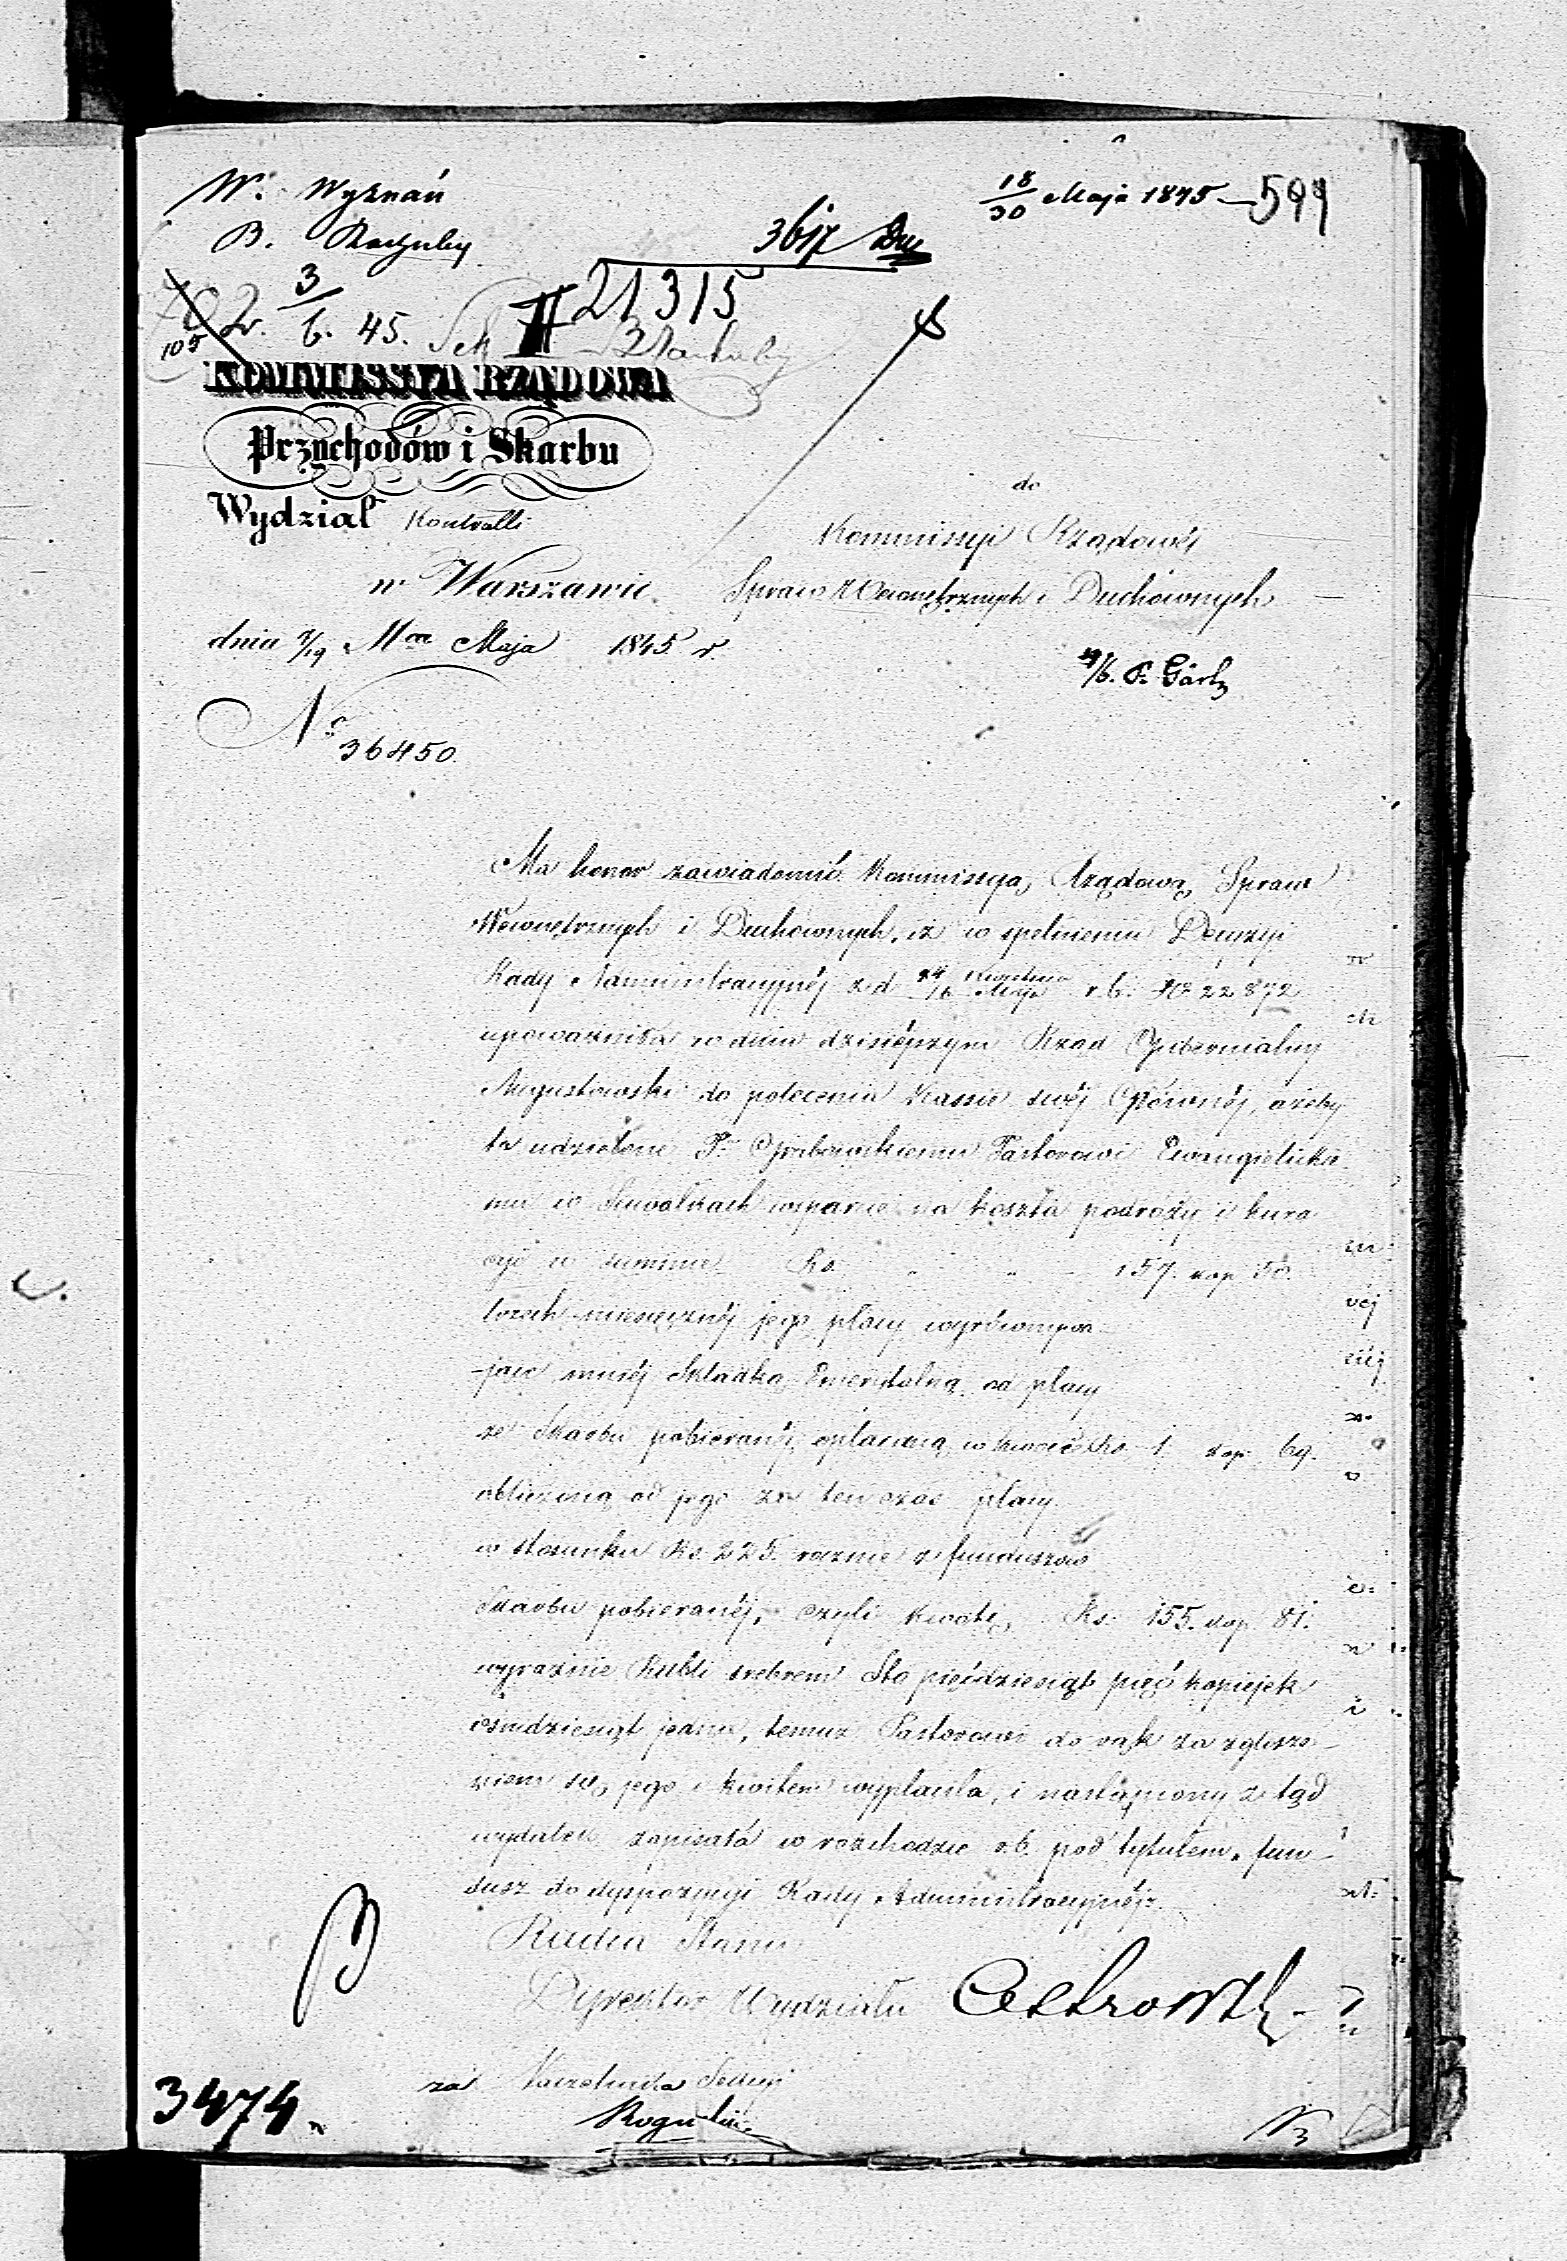 W. Wyznań
18/30 Maja 1845 — 599
B. Rachuby
3617
21315
3/6. 45.
105
KOMMISSYA RZĄDOWA
Przychodów i Skarbu
Wydział Kontrolli
w Warszawie
dnia 7/19 Mca Maja 1845 r.
No 36450.
do
Kommissyi Rządowéj
Spraw Wewnętrznych i Duchownych
P. Gärtz
Ma honor zawiadomić Kommissyą Rządową Spraw
Wewnętrznych i Duchownych, iż w spełnieniu Decyzyi
Rady Administracyjnéj z d. 24 Kwietnia/6 Maja r. b. No 22872
upoważniła w dniu dzisiéjszym Rząd Gubernialny
Augustowski do polecenia Kassie swéj Głównéj, ażeby
ta udzielone P. Grabowskiemu Pastorowi Ewangelicke-
mu w Suwałkach wsparcie na koszta podróży i kura
cyi w summie Rs. 157. kop. 50.
trzech miesięcznéj jego płacy wyrównywa-
-jące mniéj Składkę Emerytalną od płacy
ze Skarbu pobieranéj opłacaną w kwocie Rs. 1 kop. 69.
obliczoną od jego za ten czas płacy
w stosunku Rs. 225. rocznie z funduszów
Skarbu pobieranéj, czyli kwotę Rs. 155. kop. 81.
wyraźnie Rubli srebrem Sto pięćdziesiąt pięć kopiejek
ośmdziesiąt jeden, temuż Pastorowi do rąk za zgłosze-
niem się jego i kwitem wypłaciła, i nastąpiony z tąd
wydatek zapisała w rozchodzie r. b. pod tytułem „fun-
dusz do dyspozycyi Rady Administracyjnéj."
Radca Stanu
Dyrektor Wydziału
za Naczelnika Sekcyi
3474.